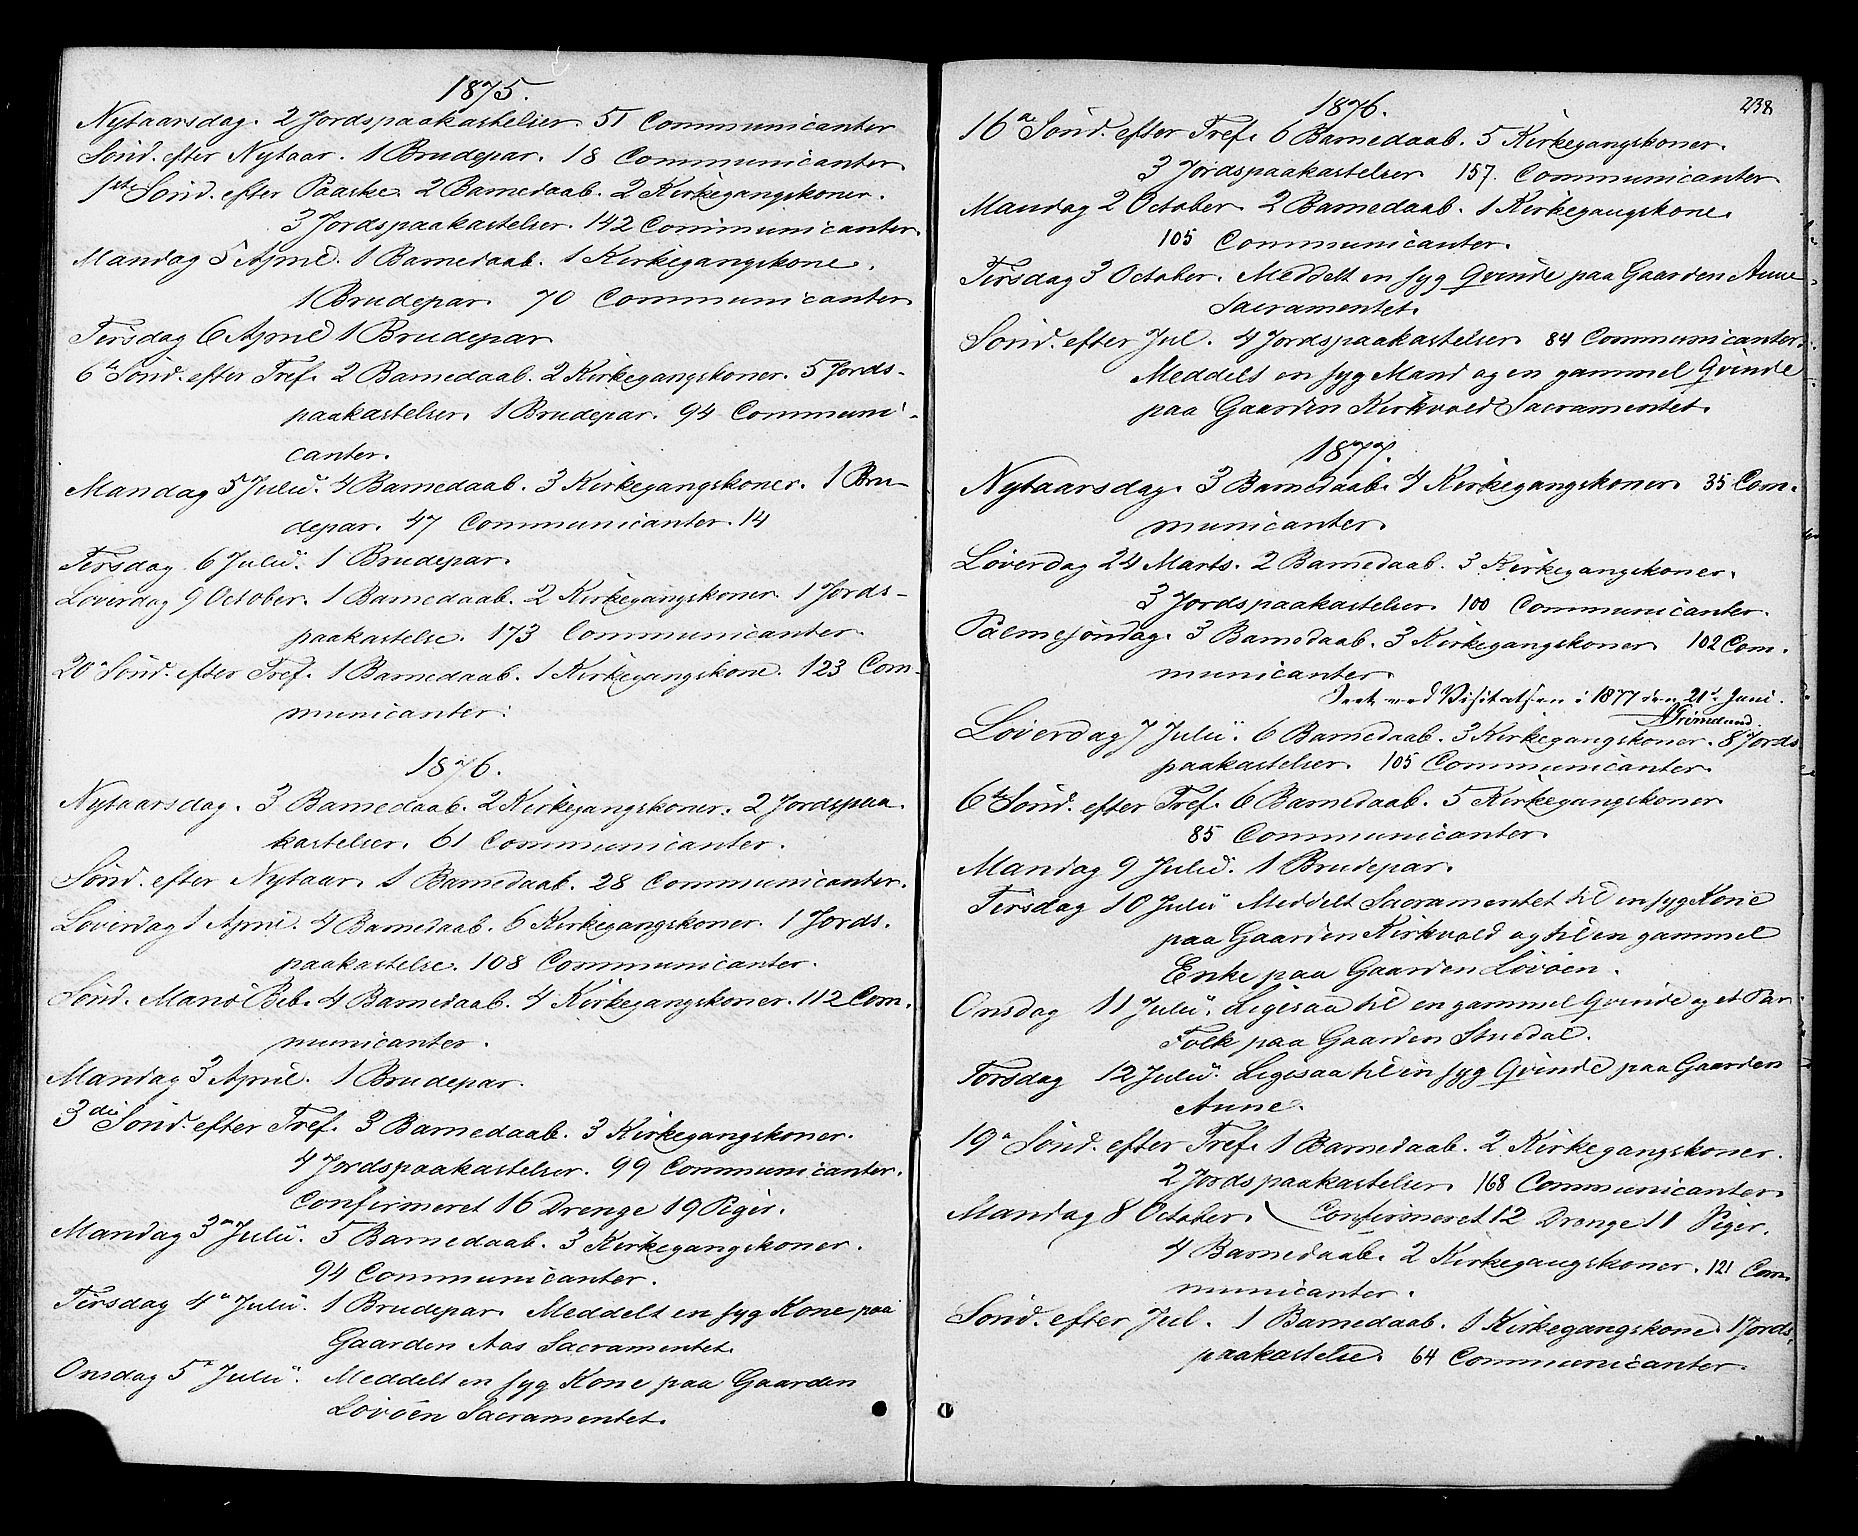 1875.
Nytaarsdag. 2 Jordspaakastelser. 51 Communicanter
Sönd. efter Nytaar. 1 Brudepar. 18 Communicanter.
1st Sönd. efter Paaske. 2 Barnedaab. 2 Kirkegangskoner.
3 Jordspaakastelser. 142 Communicanter.
Mandag 5 April. 1 Barnedaab. 1 Kirkegangskone.
1 Brudepar. 70 Communicanter
Tirsdag 6 April 1 Brudepar
6te Sönd. efter Tref. 2 Barnedaab. 2 Kirkegangskoner. 5 Jords-
paakastelser. 1 Brudepar. 94 Communi-
canter.
Mandag 5 Julii. 4 Barnedaab. 3 Kirkegangskoner. 1 Bru-
depar. 47 Communicanter. 14
Tirsdag 6 Julii. 1 Brudepar.
Löverdag 9 October. 1 Barnedaab. 2 Kirkegangskoner. 1 Jords-
paakastelse. 173 Communicanter.
20a Sönd. efter Tref. 1 Barnedaab. 1 Kirkegangskone. 123 Com-
municanter.
1876.
Nytaarsdag. 3 Barnedaab. 2 Kirkegangskoner. 2 Jordspaa-
kastelser. 61 Communicanter.
Sönd. efter Nytaar. 1 Barnedaab. 28 Communicanter.
Löverdag 1 April. 4 Barnedaab. 6 Kirkegangskoner. 1 Jords-
paakastelse. 108 Communicanter.
Sönd. Mariæ Beb. 4 Barnedaab. 4 Kirkegangskoner. 112 Com-
municanter.
Mandag 3 April. 1 Brudepar.
3die Sönd. efter Tref. 3 Barnedaab. 3 Kirkegangskoner.
4 Jordspaakastelser. 99 Communicanter.
Confirmeret 16 Drenge 19 Piger.
Mandag 3a Julii. 5 Barnedaab. 3 Kirkegangskoner.
94 Communicanter.
Tirsdag 4a Julii. 1 Brudepar. Meddelt en syg Kone paa
Gaarden Aas Sacramentet.
Onsdag 5a Julii. Meddelt en syg Kone paa Gaarden
Lövöen Sacramentet.
238
1876.
16a Sönd. efter Tref. 6 Barnedaab. 5 Kirkegangskoner.
3 Jordspaakastelser 157. Communicanter
Mandag 2 October. 2 Barnedaab. 1 Kirkegangskone.
105 Communicanter.
Tirsdag 3 October. Meddelt en syg Qvinde paa Gaarden Aune
Sacramentet.
Sönd. efter Jul. 4 Jordspaakastelser 84 Communicanter.
Meddelt en syg Mand og en gammel Qvinde
paa Gaarden Kirkvold Sacramentet.
1877.
Nytaarsdag. 3 Barnedaab. 4 Kirkegangskoner. 35 Com-
municanter.
Löverdag 24 Marts. 2 Barnedaab. 3 Kirkegangskoner.
3 Jordspaakastelser. 100 Communicanter.
Palmesöndag. 3 Barnedaab. 3 Kirkegangskoner. 102 Com-
municanter.
Seet ved Visitatsen i 1877 den 21de Juni.
Grimelund.
Löverdag 7 Julii. 6 Barnedaab. 3 Kirkegangskoner. 8 Jords-
paakastelser. 105 Communicanter.
6te Sönd. efter Tref. 6 Barnedaab. 5 Kirkegangskoner
85 Communicanter.
Mandag 9 Julii. 1 Brudepar.
Tirsdag 10 Julii Meddelt Sacramentet til en syg Kone
paa Gaarden Kirkvold og til en gammel
Enke paa Gaarden Lövöen.
Onsdag 11 Julii. Ligesaa til en gammel Qvinde og et Par
Folk paa Gaarden Stuedal.
Torsdag 12 Julii. Ligesaa til en syg Qvinde paa Gaarden
Aune.
19a Sönd. efter Tref. 1 Barnedaab. 2 Kirkegangskoner.
2 Jordspaakastelser. 168 Communicanter.
Mandag 8 October. Confirmeret 12 Drenge 11 Piger.
4 Barnedaab. 2 Kirkegangskoner. 121 Com-
municanter.
Sönd. efter Jul. 1 Barnedaab. 1 Kirkegangskone. 1 Jords-
paakastelse. 64 Communicanter.